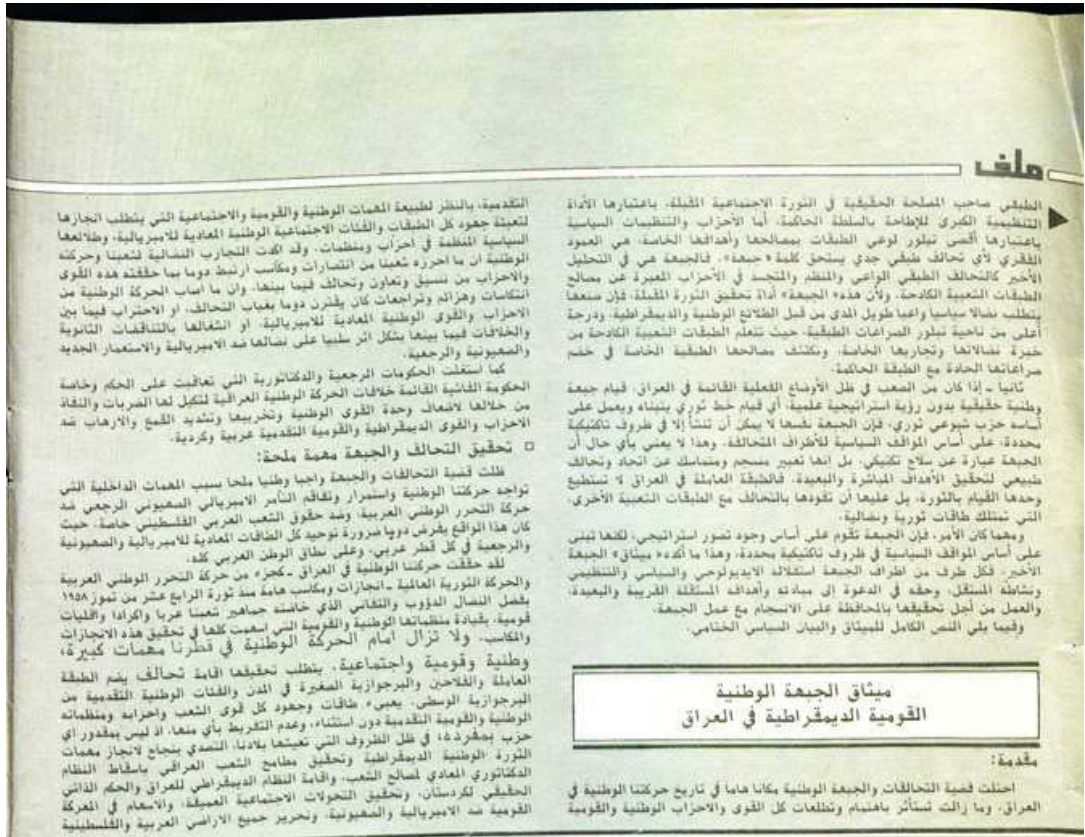 ملف
الطبقي صاحب المصلحة الحقيقية في الثورة الاجتماعية المقبلة، باعتبارها الأداة
التنظيمية الكبرى للإطاحة بالسلطة الحاكمة، أما الأحزاب والتنظيمات السياسية
باعتبارها أقصى تبلور لوعي الطبقات بمصالحها وأهدافها الخاصة، هي العمود
الفقري لأي تحالف طبقي جدي يستحق كلمة «جبهة». فالجبهة هي في التحليل
الأخير كالتحالف الطبقي الواعي والمنظم والمتجسد في الأحزاب المعبرة عن مصالح
الطبقات الشعبية الكادحة، ولأن هذه «الجبهة» أداة تحقيق الثورة المقبلة، فإن صنعها
يتطلب نضالا سياسيا واعيا طويل المدى من قبل الطلائع الوطنية والديمقراطية، ودرجة
أعلى من ناحية تبلور الصراعات الطبقية، حيث تتعلم الطبقات الشعبية الكادحة من
خبرة نضالاتها وتجاربها الخاصة، وتكتشف مصالحها الطبقية الخاصة في خضم
صراعاتها الحادة مع الطبقة الحاكمة.
ثانيا - إذا كان من الصعب في ظل الأوضاع الفعلية القائمة في العراق، قيام جبهة
وطنية حقيقية بدون رؤية استراتيجية علمية، أي قيام خط ثوري يتبناه ويعمل على
أساسه حزب شيوعي ثوري، فإن الجبهة نفسها لا يمكن أن تنشأ إلا في ظروف تاكتيكية
محددة، على أساس المواقف السياسية للأطراف المتحالفة، وهذا لا يعني بأي حال أن
الجبهة عبارة عن سلاح تكتيكي، بل انها تعبير منسجم ومتماسك عن اتحاد وتحالف
طبيعي لتحقيق الأهداف المباشرة والبعيدة، فالطبقة العاملة في العراق لا تستطيع
وحدها القيام بالثورة، بل عليها أن تقودها بالتحالف مع الطبقات الشعبية الأخرى،
التي تمتلك طاقات ثورية ونضالية.
ومهما كان الأمر، فإن الجبهة تقوم على أساس وجود تصور استراتيجي، لكنها تبنى
على أساس المواقف السياسية في ظروف تاكتيكية محددة، وهذا ما أكده «ميثاق» الجبهة
الأخير، فكل طرف من اطراف الجبهة استقلاله الايديولوجي والسياسي والتنظيمي
ونشاطه المستقل، وحقه في الدعوة إلى مبادئه وأهدافه المستقلة القريبة والبعيدة،
والعمل من أجل تحقيقها بالمحافظة على الانسجام مع عمل الجبهة.
وفيما يلي النص الكامل للميثاق والبيان السياسي الختامي.
ميثاق الجبهة الوطنية
القومية الديمقراطية في العراق
مقدمة:
احتلت قضية التحالفات والجبهة الوطنية مكانا هاما في تاريخ حركتنا الوطنية في
العراق، وما زالت تستأثر باهتمام وتطلعات كل القوى والاحزاب الوطنية والقومية
التقدمية، بالنظر لطبيعة المهمات الوطنية والقومية والاجتماعية التي يتطلب انجازها
لتعبئة جهود كل الطبقات والفئات الاجتماعية الوطنية المعادية للامبريالية، وطلائعها
السياسية المنظمة في احزاب ومنظمات. وقد اكدت التجارب النضالية لشعبنا وحركته
الوطنية ان ما احرزه شعبنا من انتصارات ومكاسب ارتبط دوما بما حققته هذه القوى
والاحزاب من تنسيق وتعاون وتحالف فيما بينها، وان ما اصاب الحركة الوطنية من
انتكاسات وهزائم وتراجعات كان يقترن دوما بغياب التحالف، او الاحتراب فيما بين
الاحزاب والقوى الوطنية المعادية للامبريالية، او انشغالها بالتناقضات الثانوية
والخلافات فيما بينها بشكل اثر سلبيا على نضالها ضد الامبريالية والاستعمار الجديد
والصهيونية والرجعية.
كما استغلت الحكومات الرجعية والدكتاتورية التي تعاقبت على الحكم وخاصة
الحكومة الفاشية القائمة خلافات الحركة الوطنية العراقية لتكيل لها الضربات والنفاذ
من خلالها لاضعاف وحدة القوى الوطنية وتخريبها وتشديد القمع والارهاب ضد
الاحزاب والقوى الديمقراطية والقومية التقدمية عربية وكردية.
□ تحقيق التحالف والجبهة مهمة ملحة:
ظلت قضية التحالفات والجبهة واجبا وطنيا ملحا بسبب المهمات الداخلية التي
تواجه حركتنا الوطنية واستمرار وتفاقم التآمر الامبريالي الصهيوني الرجعي ضد
حركة التحرر الوطني العربية، وضد حقوق الشعب العربي الفلسطيني خاصة، حيث
كان هذا الواقع يفرض دوما ضرورة توحيد كل الطاقات المعادية للامبريالية والصهيونية
والرجعية في كل قطر عربي، وعلى نطاق الوطن العربي كله.
لقد حققت حركتنا الوطنية في العراق - كجزء من حركة التحرر الوطني العربية
والحركة الثورية العالمية - انجازات ومكاسب هامة منذ ثورة الرابع عشر من تموز ١٩٥٨
بفضل النضال الدؤوب والتفاني الذي خاضته جماهير شعبنا عربا واكرادا واقليات
قومية، بقيادة منظماتها الوطنية والقومية التي اسهمت كلها في تحقيق هذه الانجازات
والمكاسب. ولا تزال أمام الحركة الوطنية في قطرنا مهمات كبيرة،
وطنية وقومية واجتماعية، يتطلب تحقيقها اقامة تحالف يضم الطبقة
العاملة والفلاحين والبرجوازية الصغيرة في المدن والفئات الوطنية التقدمية من
البرجوازية الوسطى، يعبىء طاقات وجهود كل قوى الشعب واحزابه ومنظماته
الوطنية والقومية التقدمية دون استثناء، وعدم التفريط بأي منها، اذ ليس بمقدور اي
حزب بمفرده، في ظل الظروف التي تعيشها بلادنا، التصدي بنجاح لانجاز مهمات
الثورة الوطنية الديمقراطية وتحقيق مطامح الشعب العراقي باسقاط النظام
الدكتاتوري المعادي لمصالح الشعب، واقامة النظام الديمقراطي للعراق والحكم الذاتي
الحقيقي لكردستان، وتحقيق التحولات الاجتماعية العميقة، والاسهام في المعركة
القومية ضد الامبريالية والصهيونية، وتحرير جميع الاراضي العربية والفلسطينية